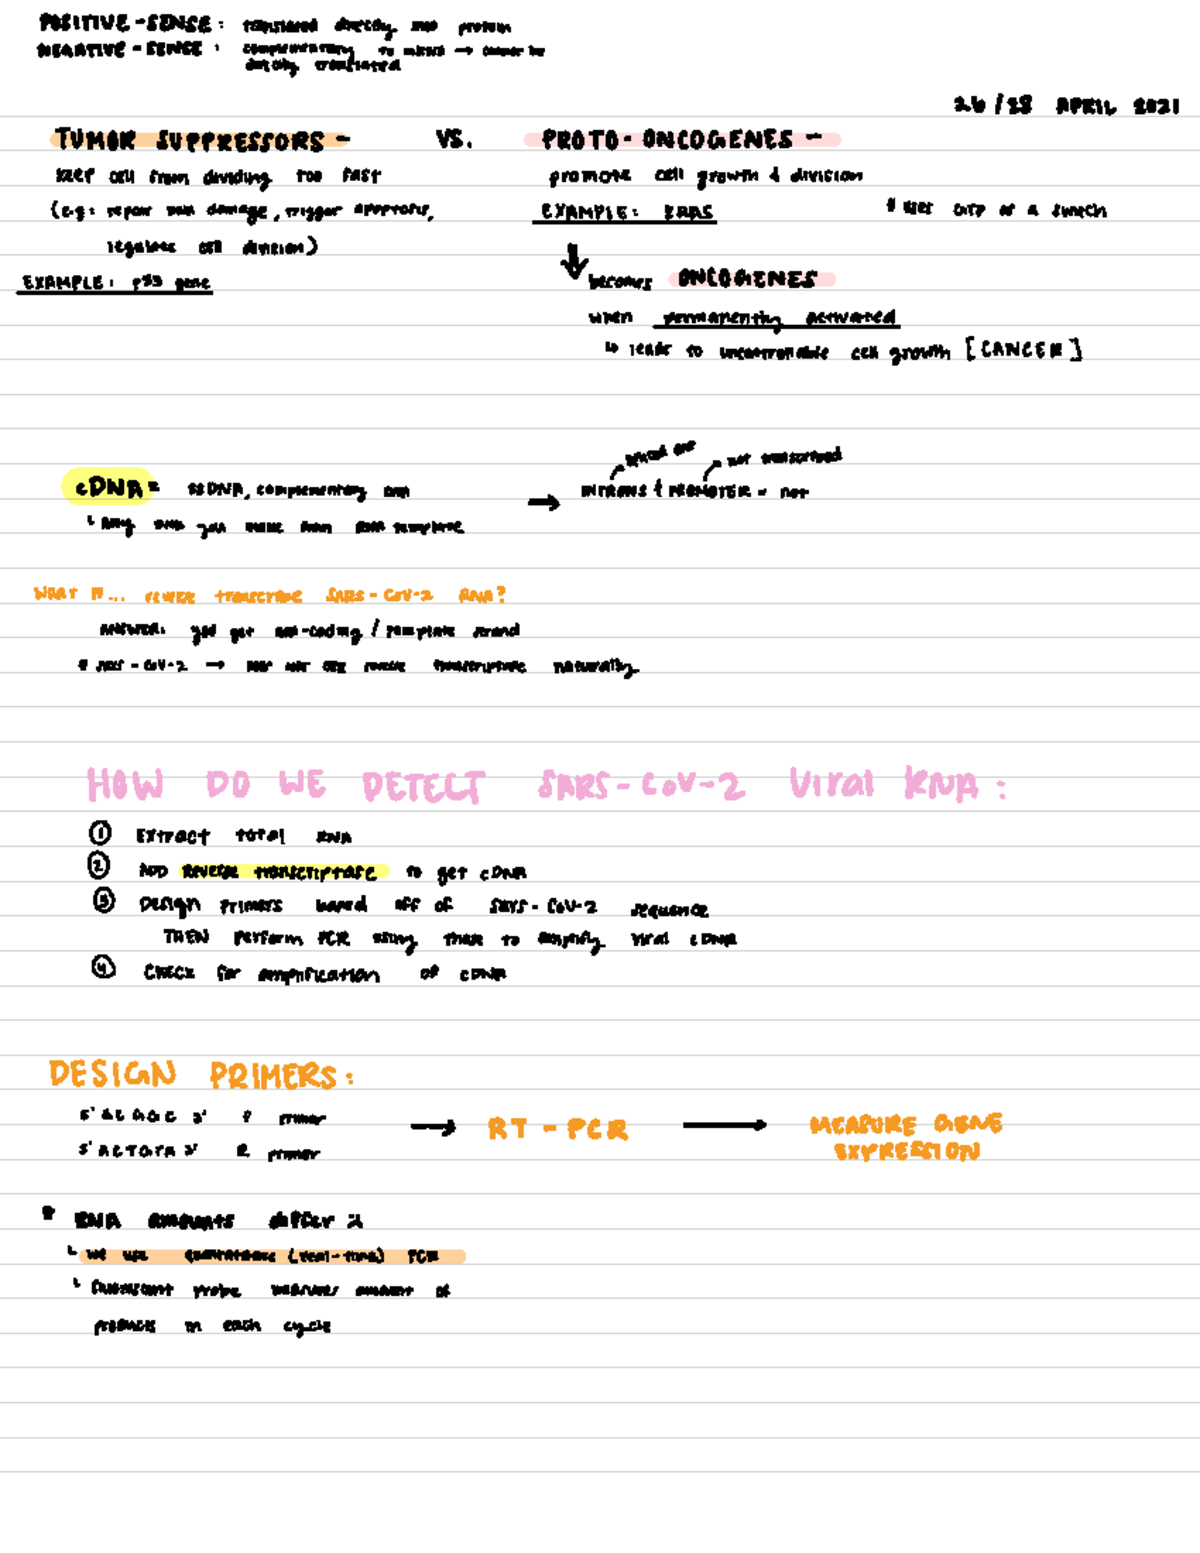 POSITIVE-SENSE: translated directly into protein
NEGATIVE-SENSE: complementary to mRNA → cannot be
directly translated
26/28 APRIL 2021
TUMOR SUPPRESSORS - VS. PROTO-ONCOGENES -
keep cell from dividing too fast
promote cell growth & division
(e.g: repair DNA damage, trigger apoptosis,
regulate cell division)
EXAMPLE: KRAS
* uses GTP as a switch
EXAMPLE: p53 gene
↓ becomes ONCOGENES
when permanently activated
↳ leads to uncontrollable cell growth [CANCER]
cDNA = ssDNA, complementary DNA
└ Any DNA you make from RNA template
→ INTRONS & PROMOTER = not
spliced out
not transcribed
WHAT IF... reverse transcribe SARS-CoV-2 RNA?
ANSWER: you get non-coding/template strand
* SARS-CoV-2 → does not use reverse transcriptase naturally
HOW DO WE DETECT SARS-CoV-2 Viral RNA:
① Extract total RNA
② ADD reverse transcriptase to get cDNA
③ Design Primers based off of SARS-CoV-2 sequence
THEN perform PCR using these to amplify viral cDNA
④ CHECK for amplification of cDNA
DESIGN PRIMERS:
F primer
R primer
→ RT-PCR → MEASURE GENE
EXPRESSION
* RNA amounts differ
└ we use quantitative (real-time) PCR
└ fluorescent probe measures amount of
products in each cycle